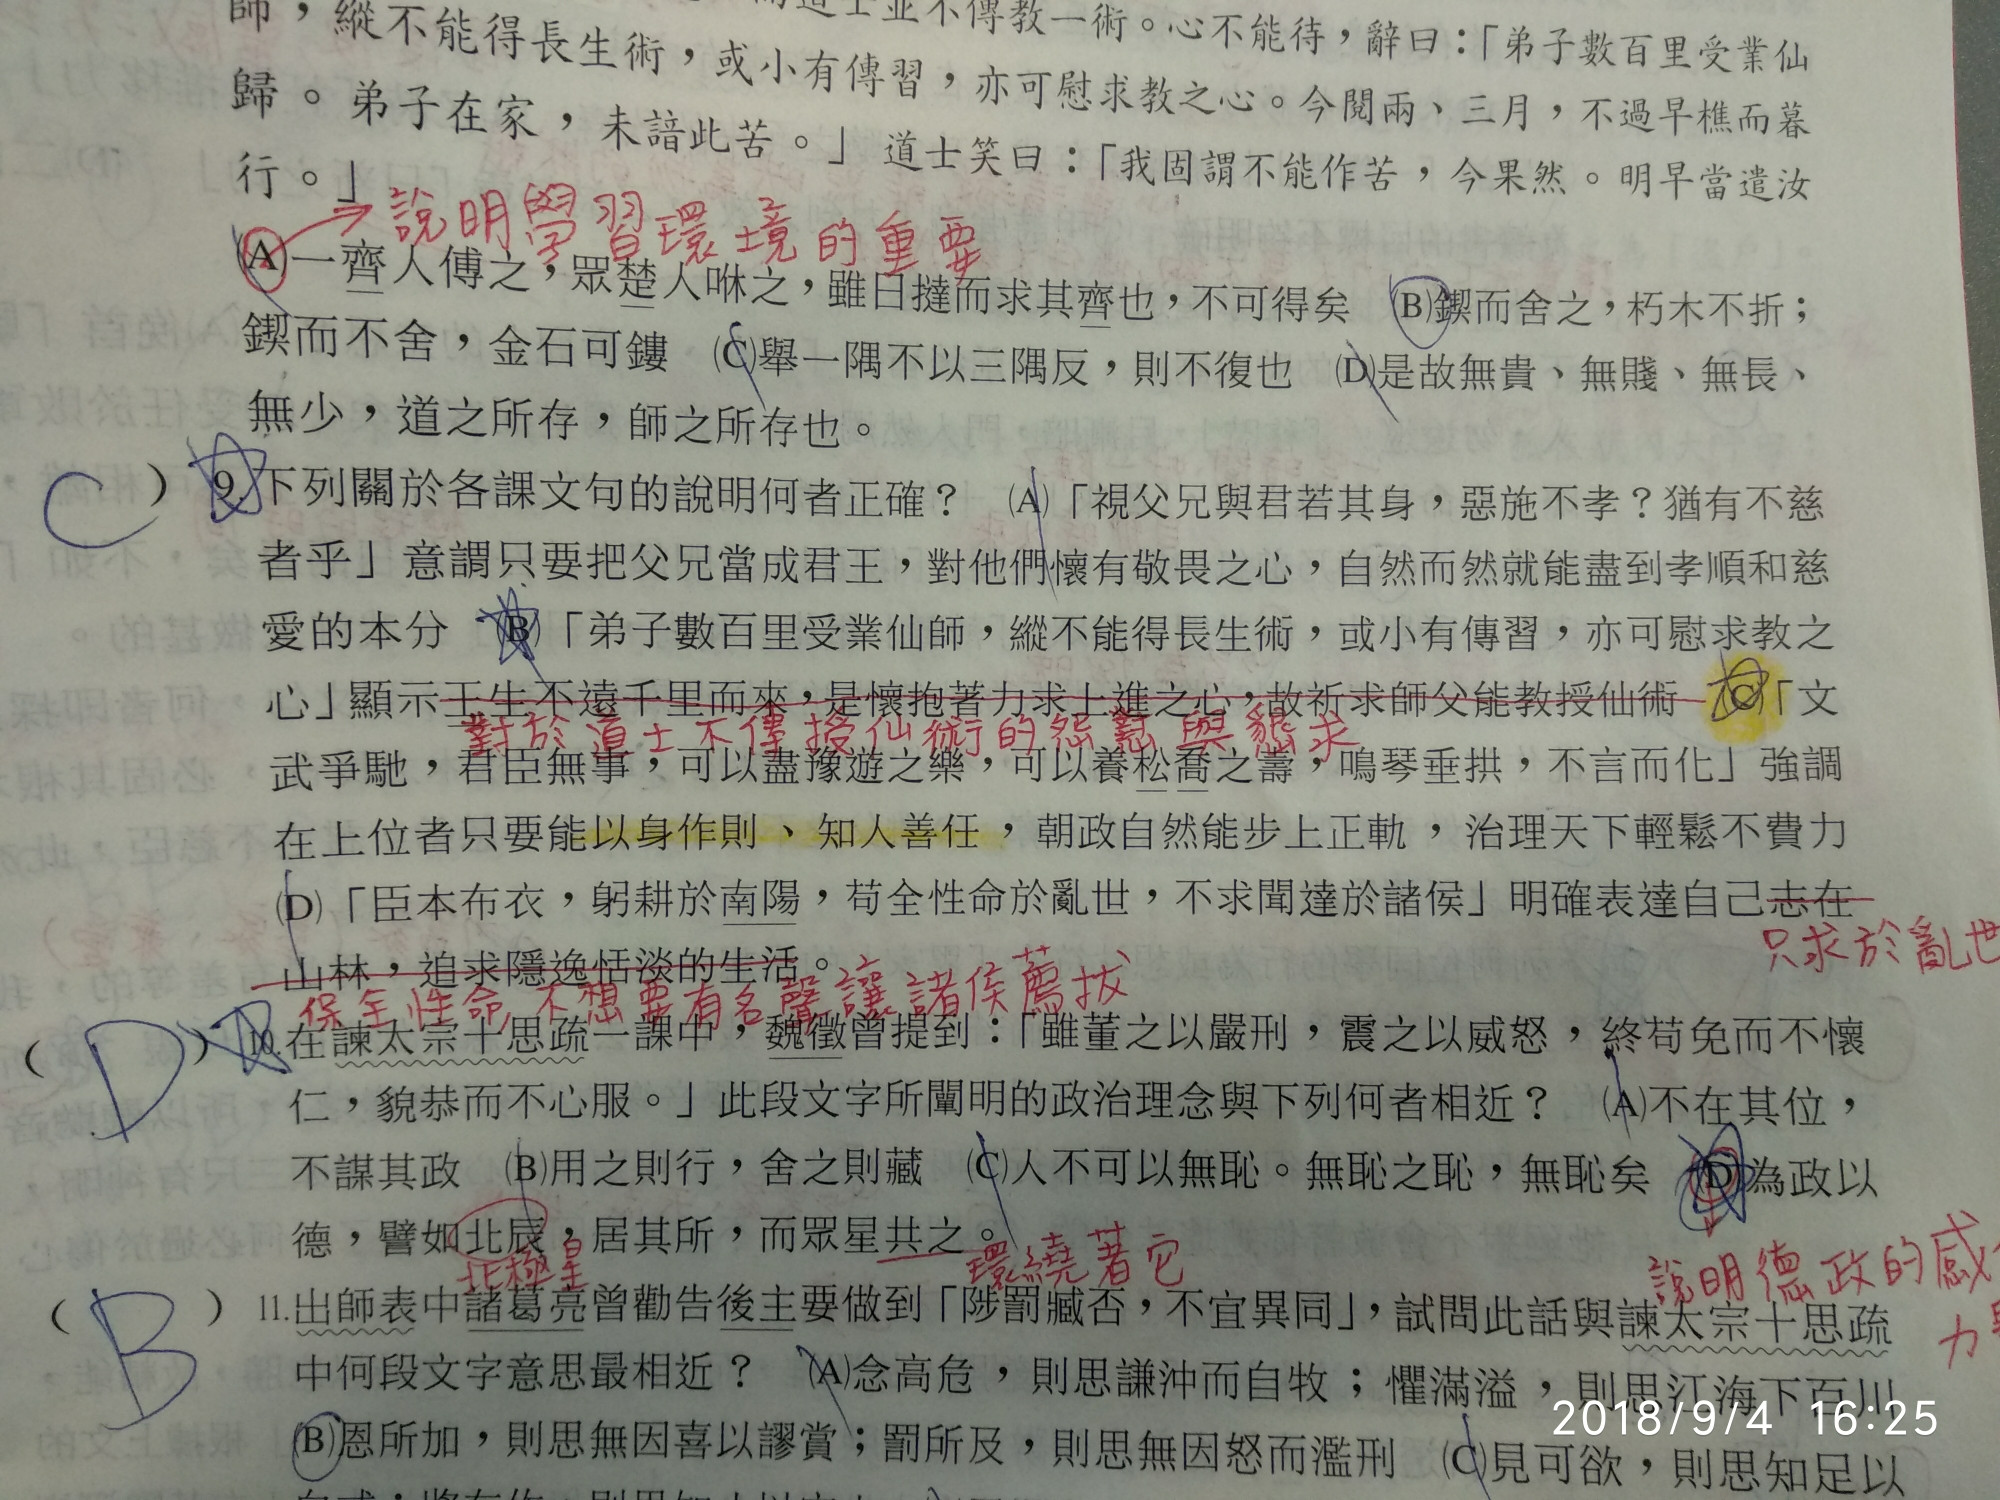 而道士並不傳教一術。心不能待，辭曰：「弟子數百里受業仙
師，縱不能得長生術，或小有傳習，亦可慰求教之心。今閱兩、三月，不過早樵而暮
歸。弟子在家，未諳此苦。」道士笑曰：「我固謂不能作苦，今果然。明早當遣汝
行。」
說明學習環境的重要
(A)一齊人傅之，眾楚人咻之，雖日撻而求其齊也，不可得矣 (B)鍥而舍之，朽木不折；
鍥而不舍，金石可鏤 (C)舉一隅不以三隅反，則不復也 (D)是故無貴、無賤、無長、
無少，道之所存，師之所存也。
C ) 9.下列關於各課文句的說明何者正確？ (A)「視父兄與君若其身，惡施不孝？猶有不慈
者乎」意謂只要把父兄當成君王，對他們懷有敬畏之心，自然而然就能盡到孝順和慈
愛的本分 (B)「弟子數百里受業仙師，縱不能得長生術，或小有傳習，亦可慰求教之
心」顯示王生不遠千里而來，是懷抱著力求上進之心，故祈求師父能教授仙術 (C)「文
對於道士不傳授仙術的怨懟與懇求
武爭馳，君臣無事，可以盡豫遊之樂，可以養松喬之壽，鳴琴垂拱，不言而化」強調
在上位者只要能以身作則、知人善任，朝政自然能步上正軌，治理天下輕鬆不費力
(D)「臣本布衣，躬耕於南陽，苟全性命於亂世，不求聞達於諸侯」明確表達自己志在
只求於亂世
山林，追求隱逸恬淡的生活。
保全性命，不想要有名聲讓諸侯薦拔
( D ) 10.在諫太宗十思疏一課中，魏徵曾提到：「雖董之以嚴刑，震之以威怒，終苟免而不懷
仁，貌恭而不心服。」此段文字所闡明的政治理念與下列何者相近？ (A)不在其位，
不謀其政 (B)用之則行，舍之則藏 (C)人不可以無恥。無恥之恥，無恥矣 (D)為政以
德，譬如北辰，居其所，而眾星共之。
北極星 環繞著它
說明德政的感
力
( B ) 11.出師表中諸葛亮曾勸告後主要做到「陟罰臧否，不宜異同」，試問此話與諫太宗十思疏
中何段文字意思最相近？ (A)念高危，則思謙沖而自牧；懼滿溢，則思江海下百川
(B)恩所加，則思無因喜以謬賞；罰所及，則思無因怒而濫刑 (C)見可欲，則思知足以
2018/9/4 16:25